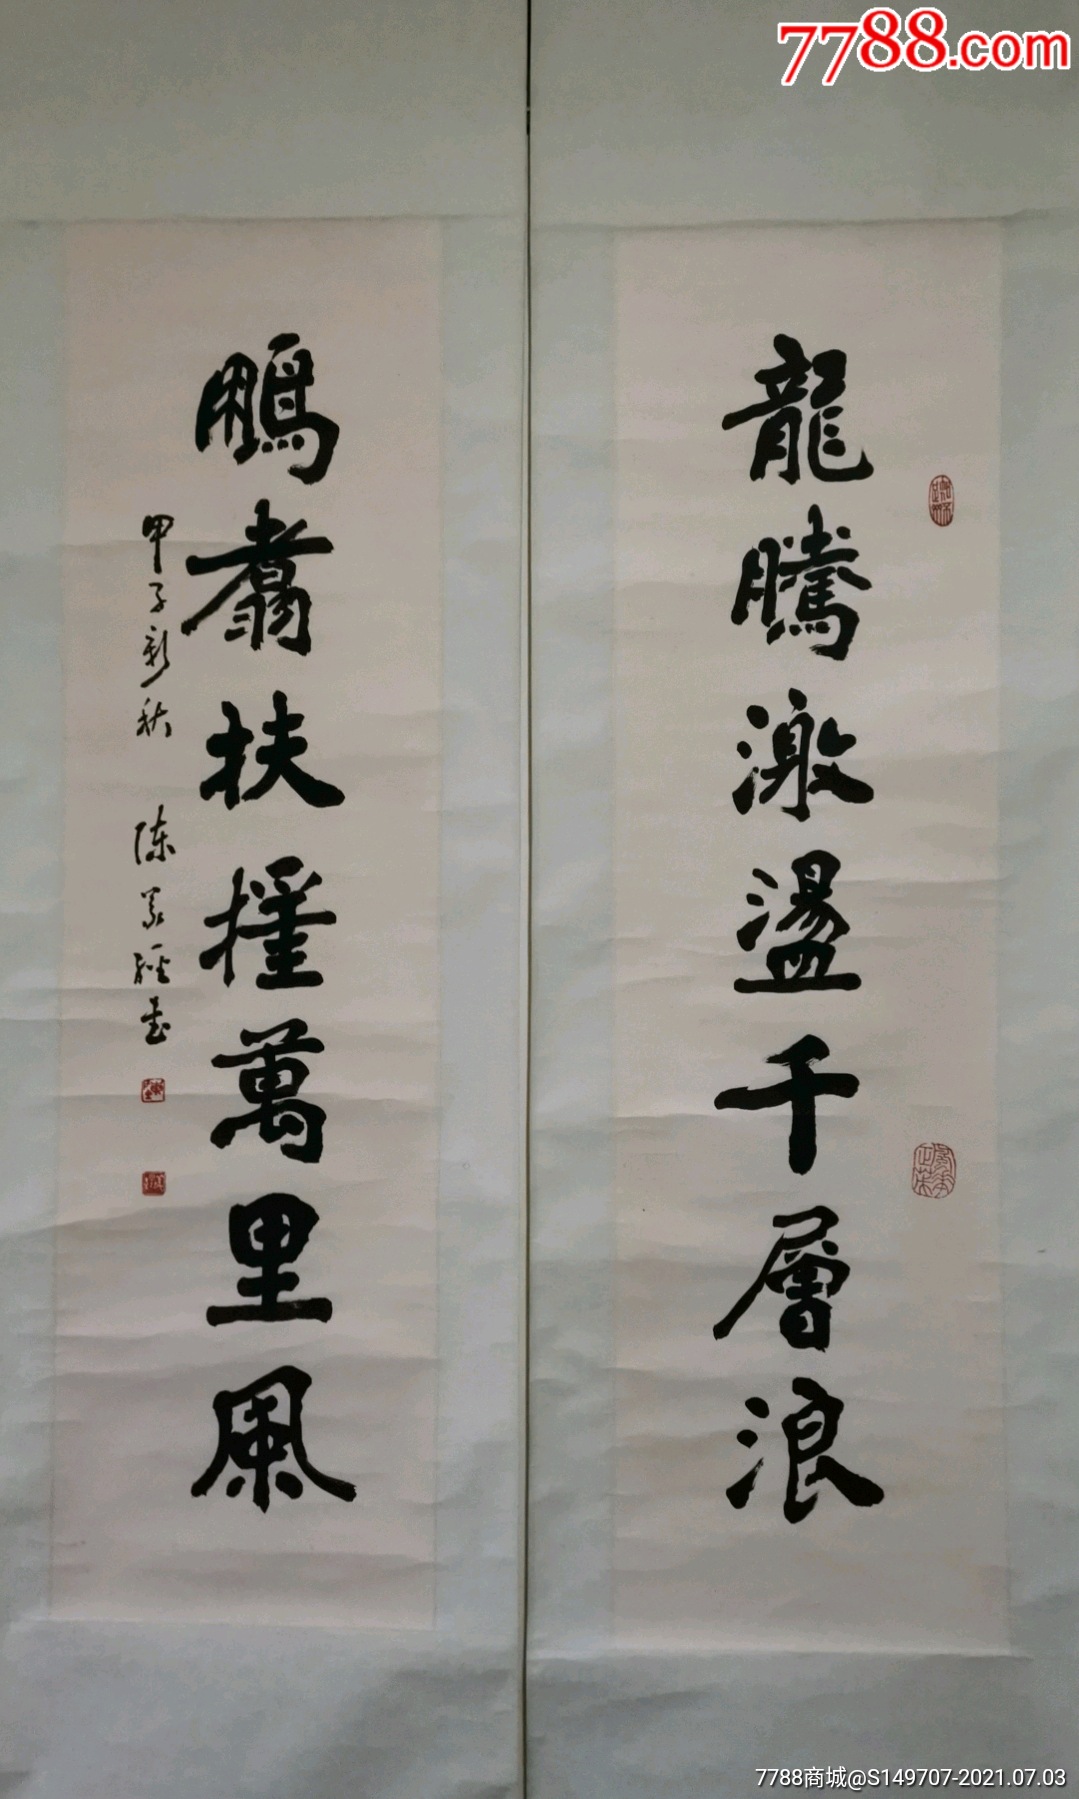 7788.com
龍騰激盪千層浪
鵬翥扶搖萬里風
甲子新秋 陳義經書
7788商城@S149707-2021.07.03